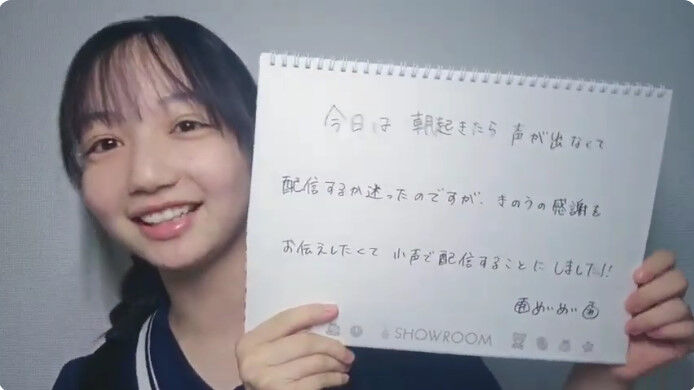 今日は 朝起きたら 声が出なくて
配信するか迷ったのですが、きのうの感謝を
お伝えしたくて 小声で配信することにしました!!
めいめい
SHOWROOM